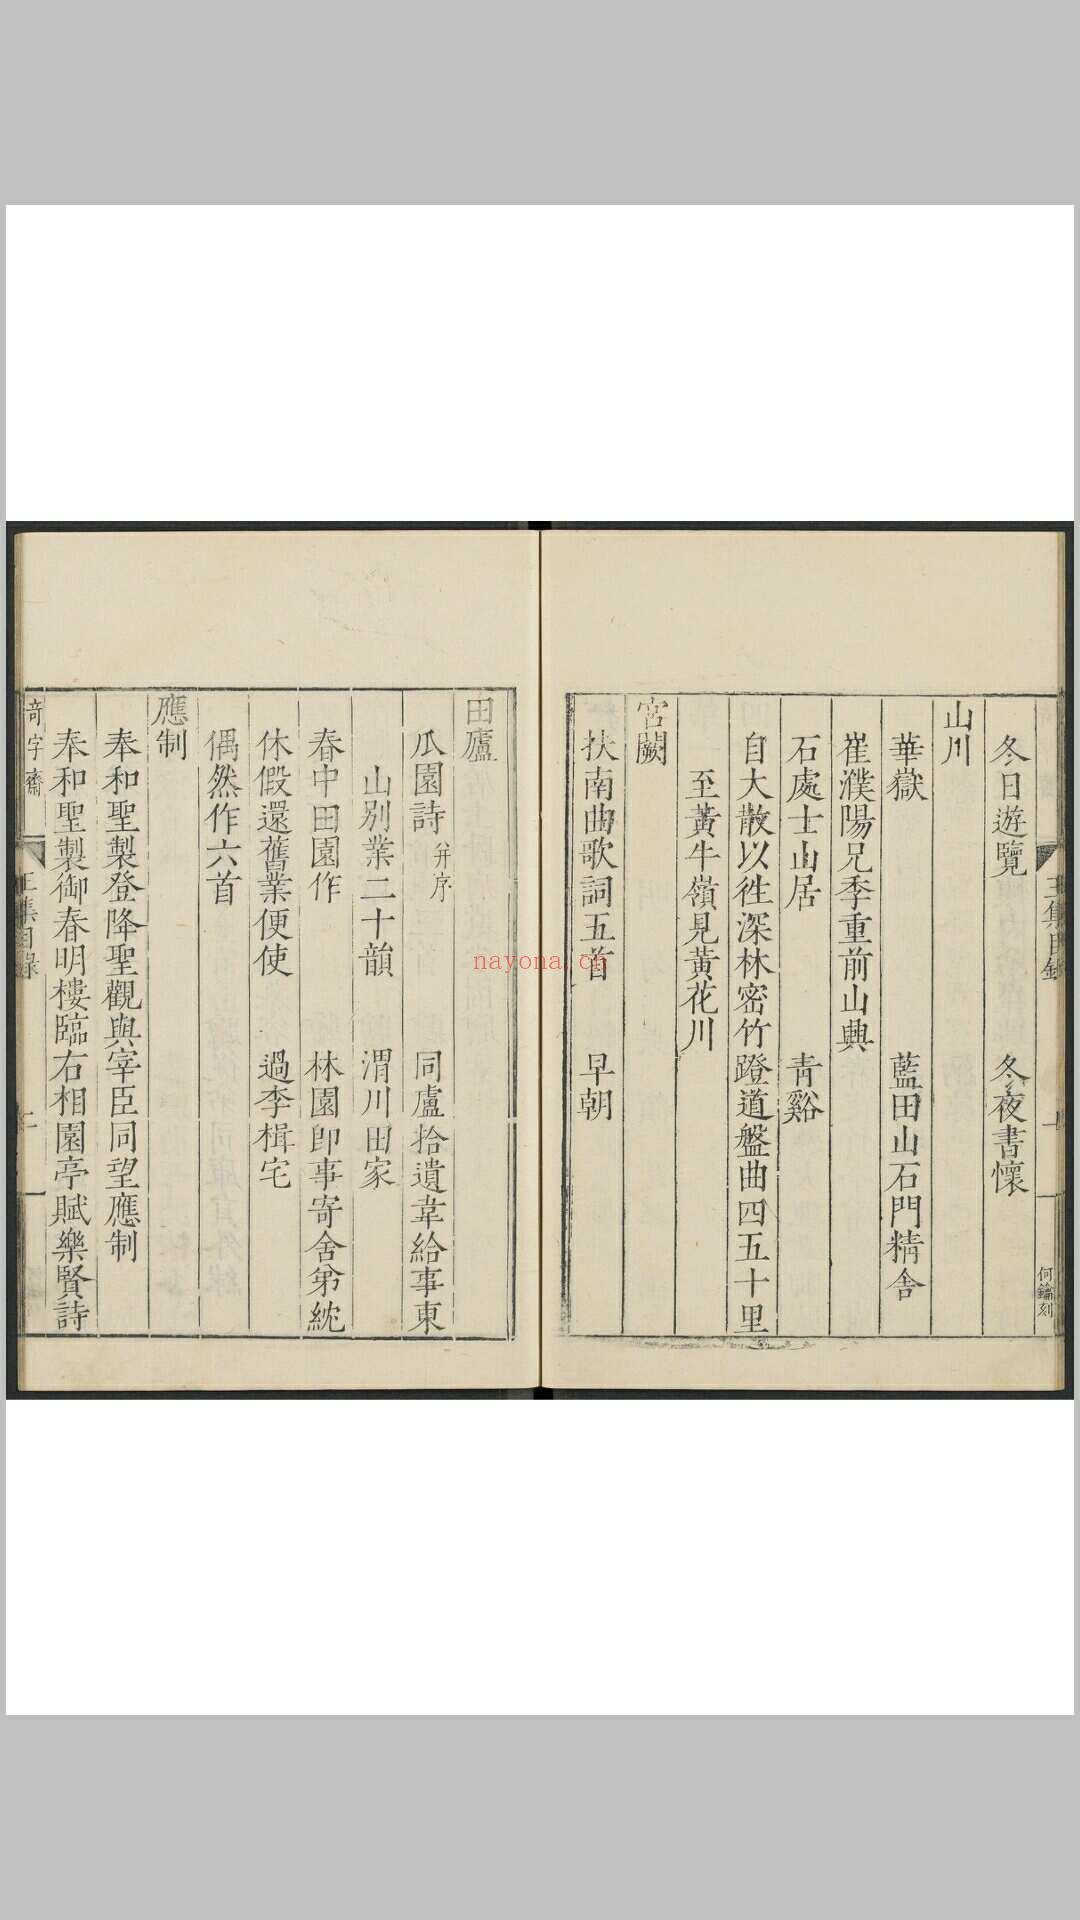 王集目錄
一
何鑰刻
冬日遊覽　冬夜書懷
山川
華嶽　藍田山石門精舍
崔濮陽兄季重前山興
石處士山居　青谿
自大散以徃深林密竹蹬道盤曲四五十里
至黃牛嶺見黃花川
宮闕
扶南曲歌詞五首　早朝
田廬
瓜園詩并序　同盧拾遺韋給事東
山別業二十韻　渭川田家
春中田園作　林園即事寄舍弟紞
休假還舊業便使　過李楫宅
偶然作六首
應制
奉和聖製登降聖觀與宰臣同望應制
奉和聖製御春明樓臨右相園亭賦樂賢詩
奇字齋
王集目錄
nayona.cn